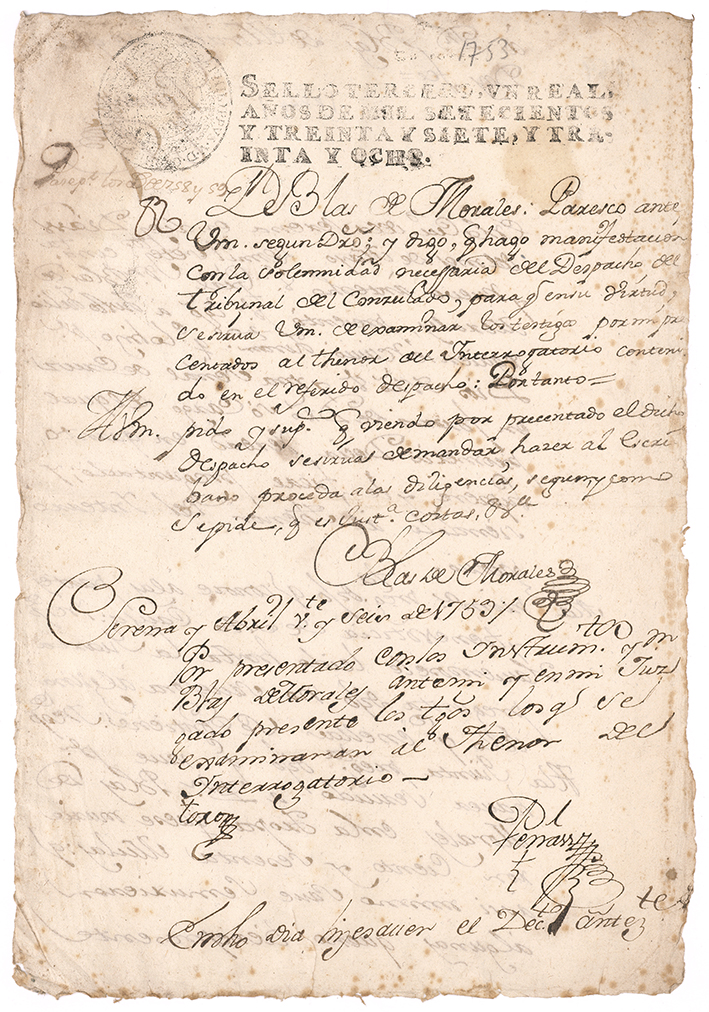 1753
SELLO TERCERO, VN REAL,
AÑOS DE MIL SETECIENTOS
Y TREINTA Y SIETE, Y TRE-
INTA Y OCHO.
1758 y 59
Dn Blas de Morales: Paresco ante
Vm. segun Dro; y digo, q hago manifestacion
con la solemnidad necessaria del Despacho del
tribunal del Consulado, para q en su virtud,
se sirua Vm. de examinar los testigo por mi pre
centados al thenor del Interrogatorio conteni
do en el referido despacho: Por tanto=
A Vm. pido y sup.co q viendo por precentado el dicho
despacho se siruas de mandar hazer al Escri
bano proceda a las diligencias, segun y como
se pide, q es Just.a costas, &.
Blas de Morales
Serena y Abril v.te y Seis de 1753/
Por presentado con los Instrum.tos y
Blas de Morales ante mi y en mi Juz
gado presente los tgos los q se
examinaran al Thenor del
Interrogatorio—
En dho dia hize sauer el Dec.to ante